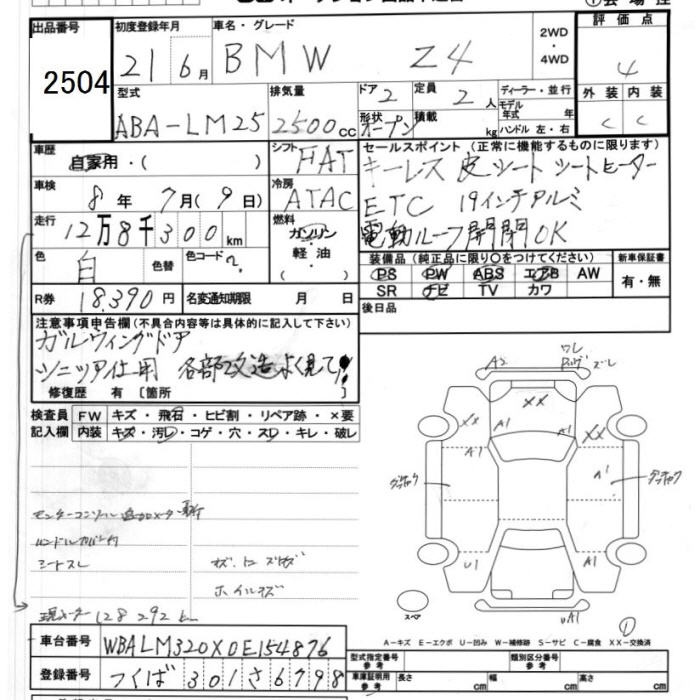 出品番号 初度登録年月 車名・グレード 2WD・4WD 評価点
2504 21年6月 BMW Z4 4
型式 排気量 ドア 2 定員 2人 ディーラー・並行 外装 内装
ABA-LM25 2500cc 形状 オープン 積載 kg モデル年式 年 ハンドル 左・右 C C
車歴 自家用・( ) シフト FAT セールスポイント (正常に機能するものに限ります)
キーレス 皮シート シートヒーター
車検 8年7月(9日) 冷房 ATAC ETC 19インチアルミ
走行 12万8千300km 燃料 ガソリン・軽油・( ) 電動ルーフ開閉OK
色 白 色替 色コード 装備品 (純正品に限り○をつけてください) 新車保証書
PS PW ABS エアB AW 有・無
SR ナビ TV カワ
R券 18,390円 名変通知期限 月 日 後日品
注意事項申告欄 (不具合内容等は具体的に記入して下さい)
ガルウィングドア
ソニックア仕用 各部改造よく見て!
修復歴 有 [箇所
検査員 FW キズ・飛石・ヒビ割・リペア跡・×要
記入欄 内装 キズ・汚レ・コゲ・穴・スレ・キレ・破レ
シートスレ
ホイルキズ
現メーター 128292km
A2
ワレ
ズレ
XX
XX
XX
A1
A1
A1
A1
A1
U1
スペア
①
A-キズ E-エクボ U-凹み W-補修跡 S-サビ C-腐食 XX-交換済
車台番号 WBALM320X0E154876
登録番号 つくば 301 さ 6798
型式指定番号 参考 類別区分番号 参考
車庫証明用 参考 長さ cm 幅 cm 高さ cm